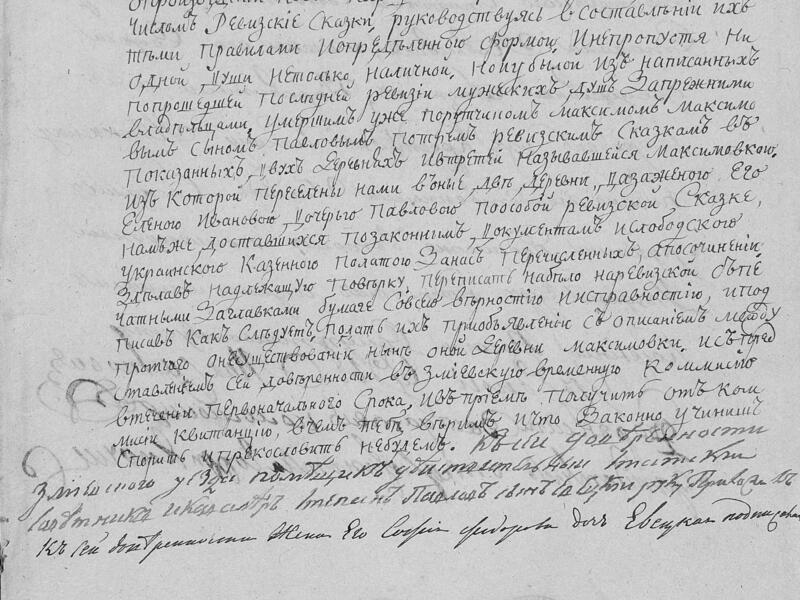 числомъ Ревизскіе Сказки, руководствуясь в составленіи ихъ
тѣми правилами и опредѣленною формою, и непропустя ни
одной души нетолько наличной, но и убылой изъ написанныхъ
по прошедшей послѣдней ревизіи мужескихъ душъ за прежними
владѣльцами, умершимъ уже порутчикомъ Максимомъ Максимо
вымъ сыномъ Павловымъ по тремъ ревизскимъ сказкамъ въ
показанныхъ двухъ деревняхъ и втретей называвшейся Максимовкою,
изъ которой переселены нами въ оные двѣ деревни, да за женою Его
Еленою Ивановою дочерью Павловою по особой ревизской сказке,
намъ же доставшихся по законнимъ документамъ и слободского
украинского казенного полатою за насъ перечисленныхъ, а по сочиненіи
здѣлавъ надлежащую повѣрку, переписать на бѣло на ревизской съ пе
чатными заглавками бумаге со всею вѣрностію и исправностію, и под
писавъ какъ слѣдуетъ, подать ихъ при объявленіи с описаніемъ между
протчего о несуществованіи нынѣ оной деревни Максимовки, и съ пред
ставленіемъ сей довѣренности въ Зміевскую временную коммисію
в теченіи первоначального срока, и въ пріемѣ получить отъ ком
мисіи квитанцію, в чемъ тебѣ вѣримъ и что законно учинишъ
спорить и прекословить небудемъ. Къ сей довѣренности
Зміевского уѣзда помѣщикъ
советникъ и кавалеръ Степанъ сынъ руку приложилъ
къ сей довѣренности жена Его Софія Федорова дочь подписалась